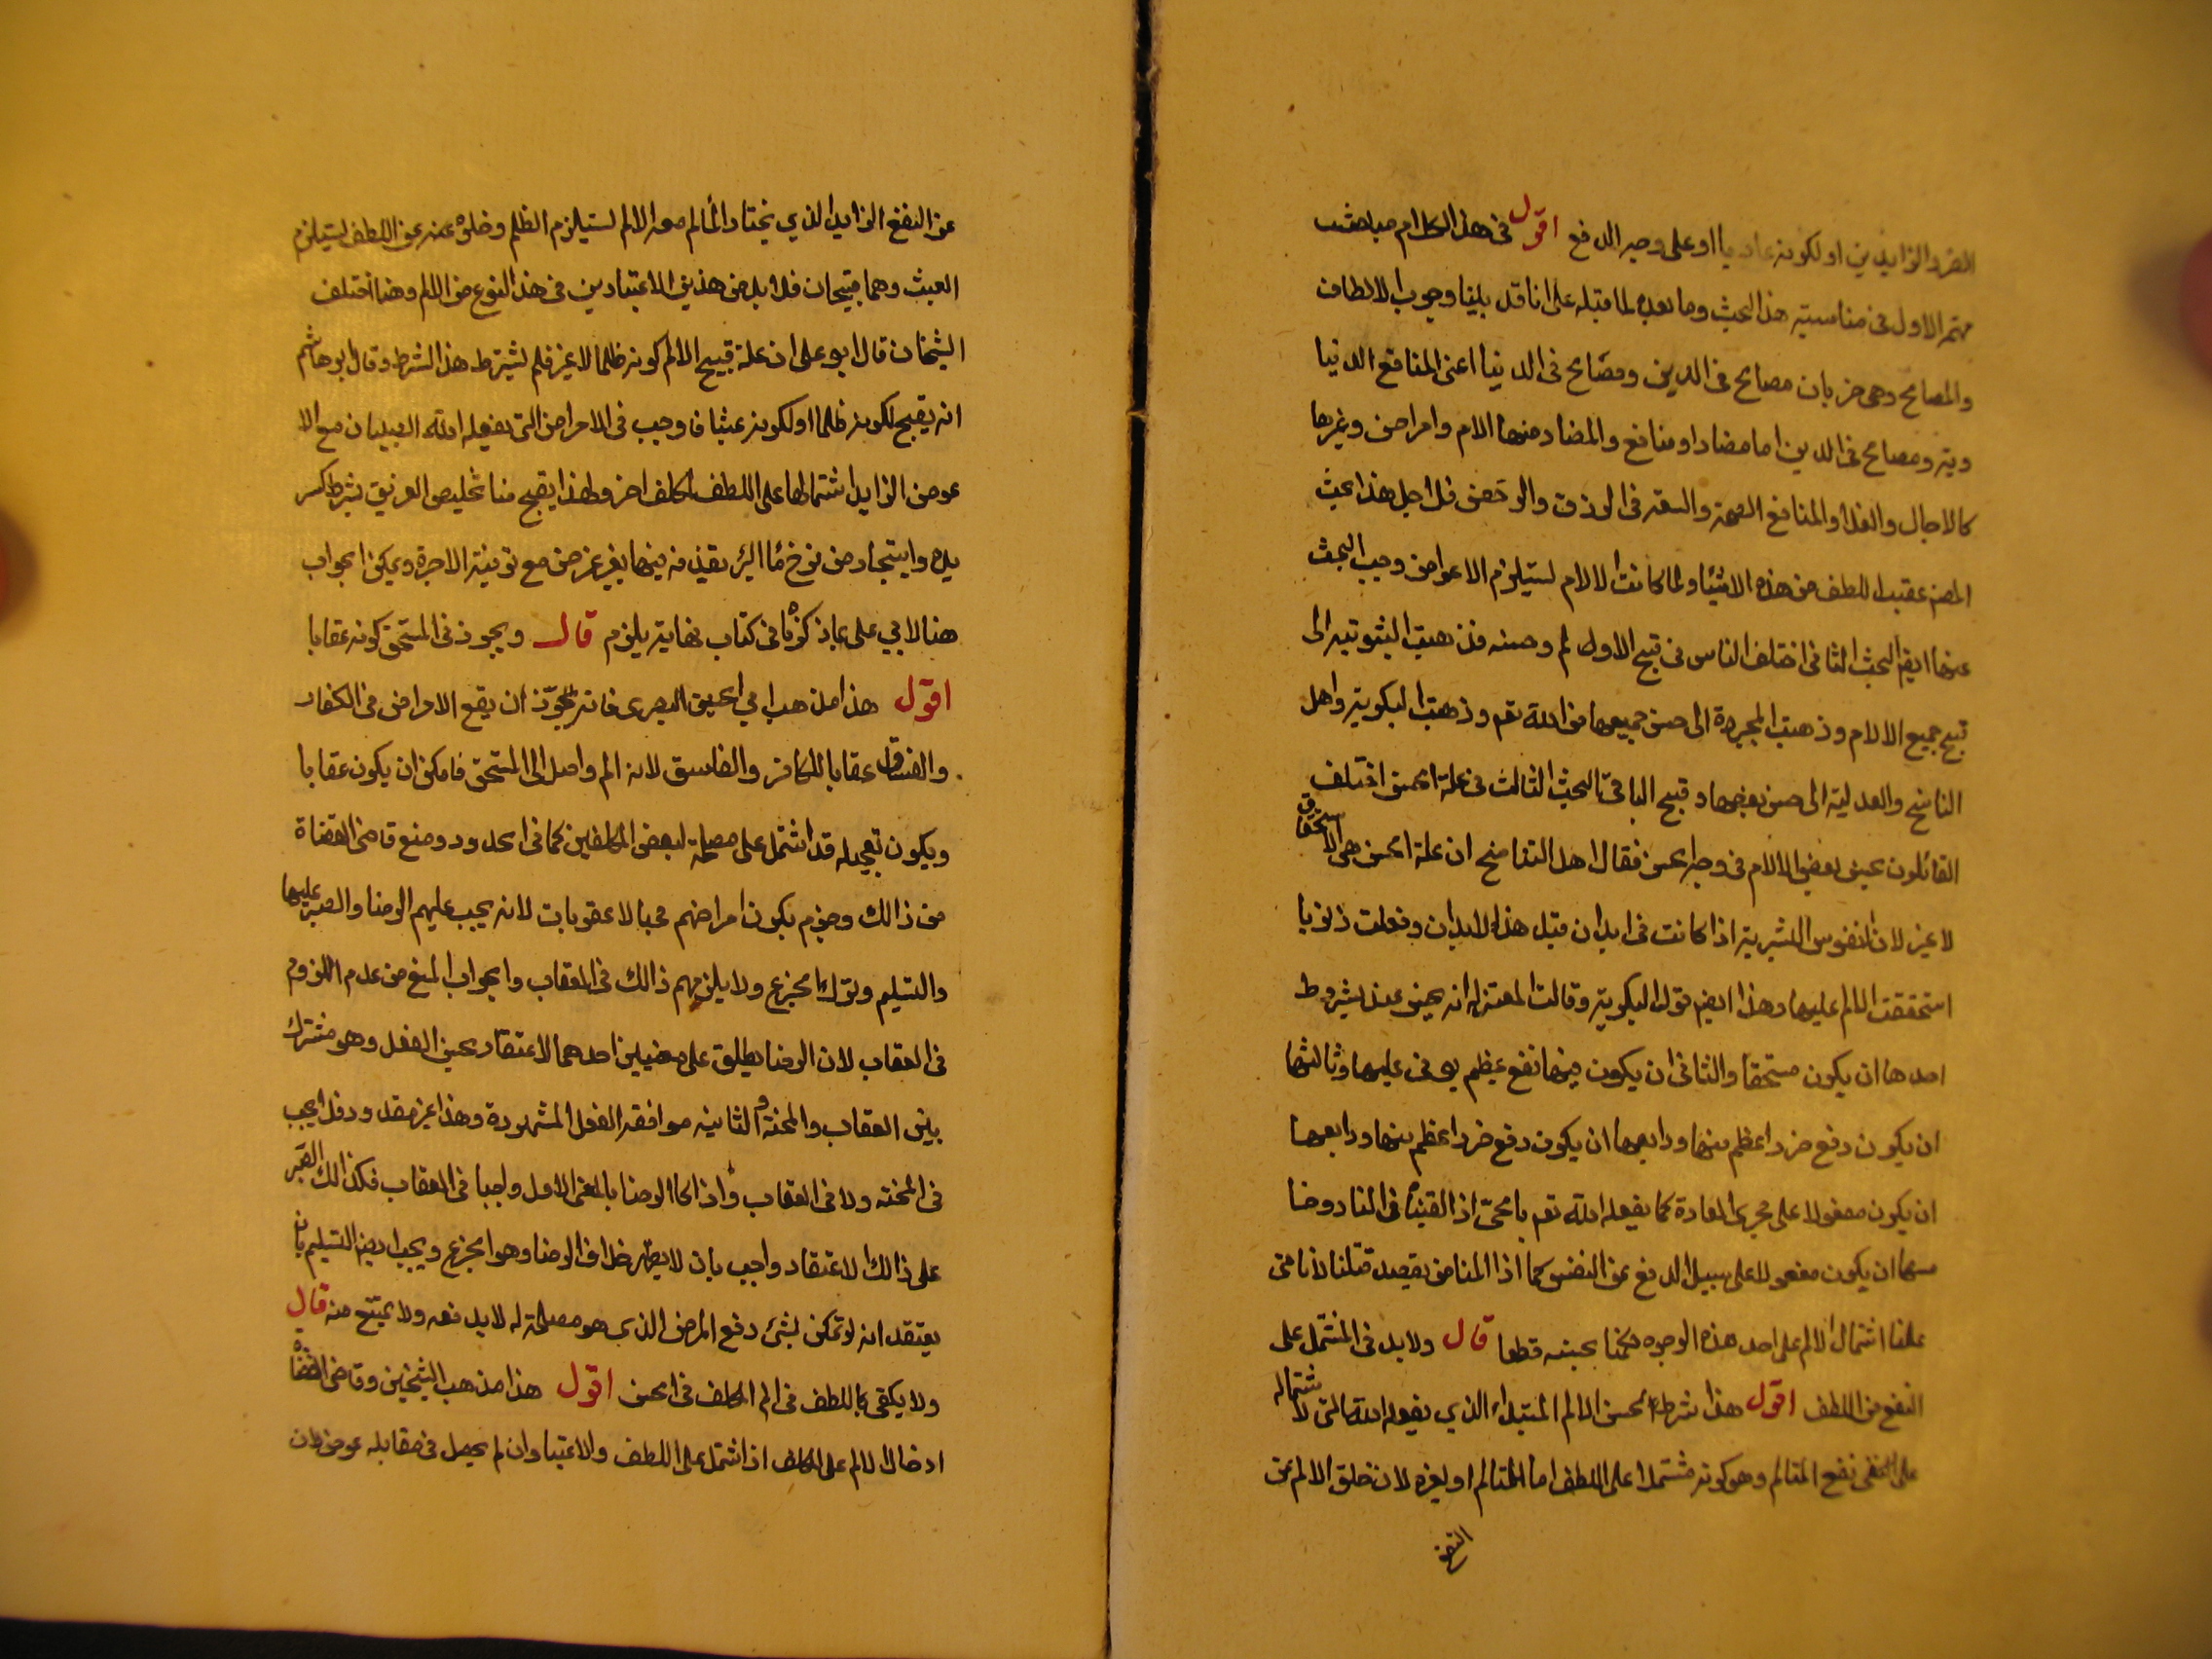 الضرر الزايدين او لكونه عاديا او على وجه الدفع اقول فى هذا الكلام مباحث
مهم الاول فى مناسبته هذا البحث وما بعده لما قبله على انا قد بلينا وجوب الالطاف
والمصالح وهى ضربان مصالح فى الدين ومصالح فى الدنيا اعنى المنافع الدنيا
ويه ومصالح فى الدين اما مضار او منافع والمضار منها الام وامراض وغيرها
كالاجال والغلا او المنافع الصحة والسعة فى الرزق والرخص فلاجل هذا بحث
المصنف عقيب اللطف عن هذه الاشياء ولما كانت الالام لستيلزم الاعواض وجب البحث
عنها ايضا البحث الثانى اختلف الناس فى قبح الاول لم وحسنه فذهبت الثنوتيه الى
قبح جميع الالام وذهبت المجبرة الى حسن جميعها من الله تعم وذهبت البكوية واهل
التناسخ والعدلية الى حسن بعضها وقبح الباقى البحث الثالث فى علة الحسن اختلف
القائلون بحسن بعض الالام فى وجه الحسن فقال اهل التناسخ ان علة الحسن هى الاستحقاق
لا غير لان النفوس البشرية اذا كانت فى ابدان قبل هذا الابدان وفعلت ذنوبا
استحققت الالم عليها وهذا ايضا قول البكوية وقالت المعتزله انه يحسن عند شروط
احدها ان يكون مستحقا والثانى ان يكون فيها نفع عظيم يوفى عليها وثالثها
ان يكون دفع ضرر اعظم منها ورابعها ان يكون دفع ضرر اعظم منها ورابعها
ان يكون مفعولا على مجرى العادة كما يفعله الله تعم بالحى اذا القيناه فى النار وخا
مسها ان يكون مفعولا على سبيل الدفع عن النفس كما اذا المنا من يقصد قتلنا لانا متى
علمنا اشتمال الالم على احد هذه الوجوه حكمنا بحسنه قطعا قال ولا بد فى المشتمل على
النفع من اللطف اقول هذا شرط لحسن الالم المبتداء الذى يفعله الله تعالى لاشتماله
على نفع المتالم وهو كونه مشتملا على اللطف اما للمتالم او لغيره لان خلق الالم عن
النفع
عن النفع الزايد الذي يختار المالم معه الالم لستيلزم الظلم وخلوه عنه عن اللطف لستيلزم
العبث وهما قبيحان فلا بد من هذين الاعتبارين فى هذا النوع من الالم وهنا اختلف
الشيخان قال ابو على ان علة قبيح الالم كونه ظلما لا غير فلم يشترط هذا الشرط وقال ابو هاشم
انه يقبح لكونه ظلما او لكونه عبثا فاوجب فى الامراض التى يفعله الله الصبيان مع الا
عوض الزايد اشتمالها على اللطف لمكلف اخر ولهذا يقبح منا تخليص الغريق بشرط كسر
يده وايتجار من نزح ماء البئر يقذفه فيها بغير غرض مع توفية الاجرة ويمكن الجواب
هنا لابي على بما ذكرناه فى كتاب نهاية يلزم قال ويجوز فى المستحق كونه عقابا
اقول هذا مذهب ابي الحسين البصرى فانه يجوّز ان يقع الامراض فى الكفار
والفساق عقابا للكافر والفاسق لانه الم واصل الى المستحق فامكن ان يكون عقابا
ويكون تعجيله قد اشتمل على مصلحة لبعض المكلفين كما فى الحدود ومنع قاضى القضاة
من ذالك وجزم بكون امراضهم محبا لا عقوبات لانه يجب عليهم الرضا والصبر عليها
والتسليم وترك الجزع ولا يلزمهم ذالك فى العقاب والجواب المنع من عدم اللزوم
فى العقاب لان الرضا يطلق على معنيين احدهما الاعتقاد بحسن الفعل وهو مشترك
بين العقاب والمحنة والثانيه موافقه الفعل المشهورة وهذا غير مقدور فلا يجب
فى المحنه ولا فى العقاب واذا كان الرضا بالمعنى الاول واجبا فى العقاب فكذالك الصبر
على ذالك الاعتقاد واجب بان لا يظهر خلاف الرضا وهو الجزع ويجب ايضا التسليم بان
يعتقد انه لو تمكن بشئ دفع المرض الذى هو مصلحة له لا يدفعه ولا يمتنع منه قال
ولا يكفى اللطف فى الم المكلف فى الحسن اقول هذا مذهب الشيخين وقاضى القضاه
ادخال الالم على المكلف اذا اشتمل على اللطف والاعتبار وان لم يحصل فى مقابله عوض لان